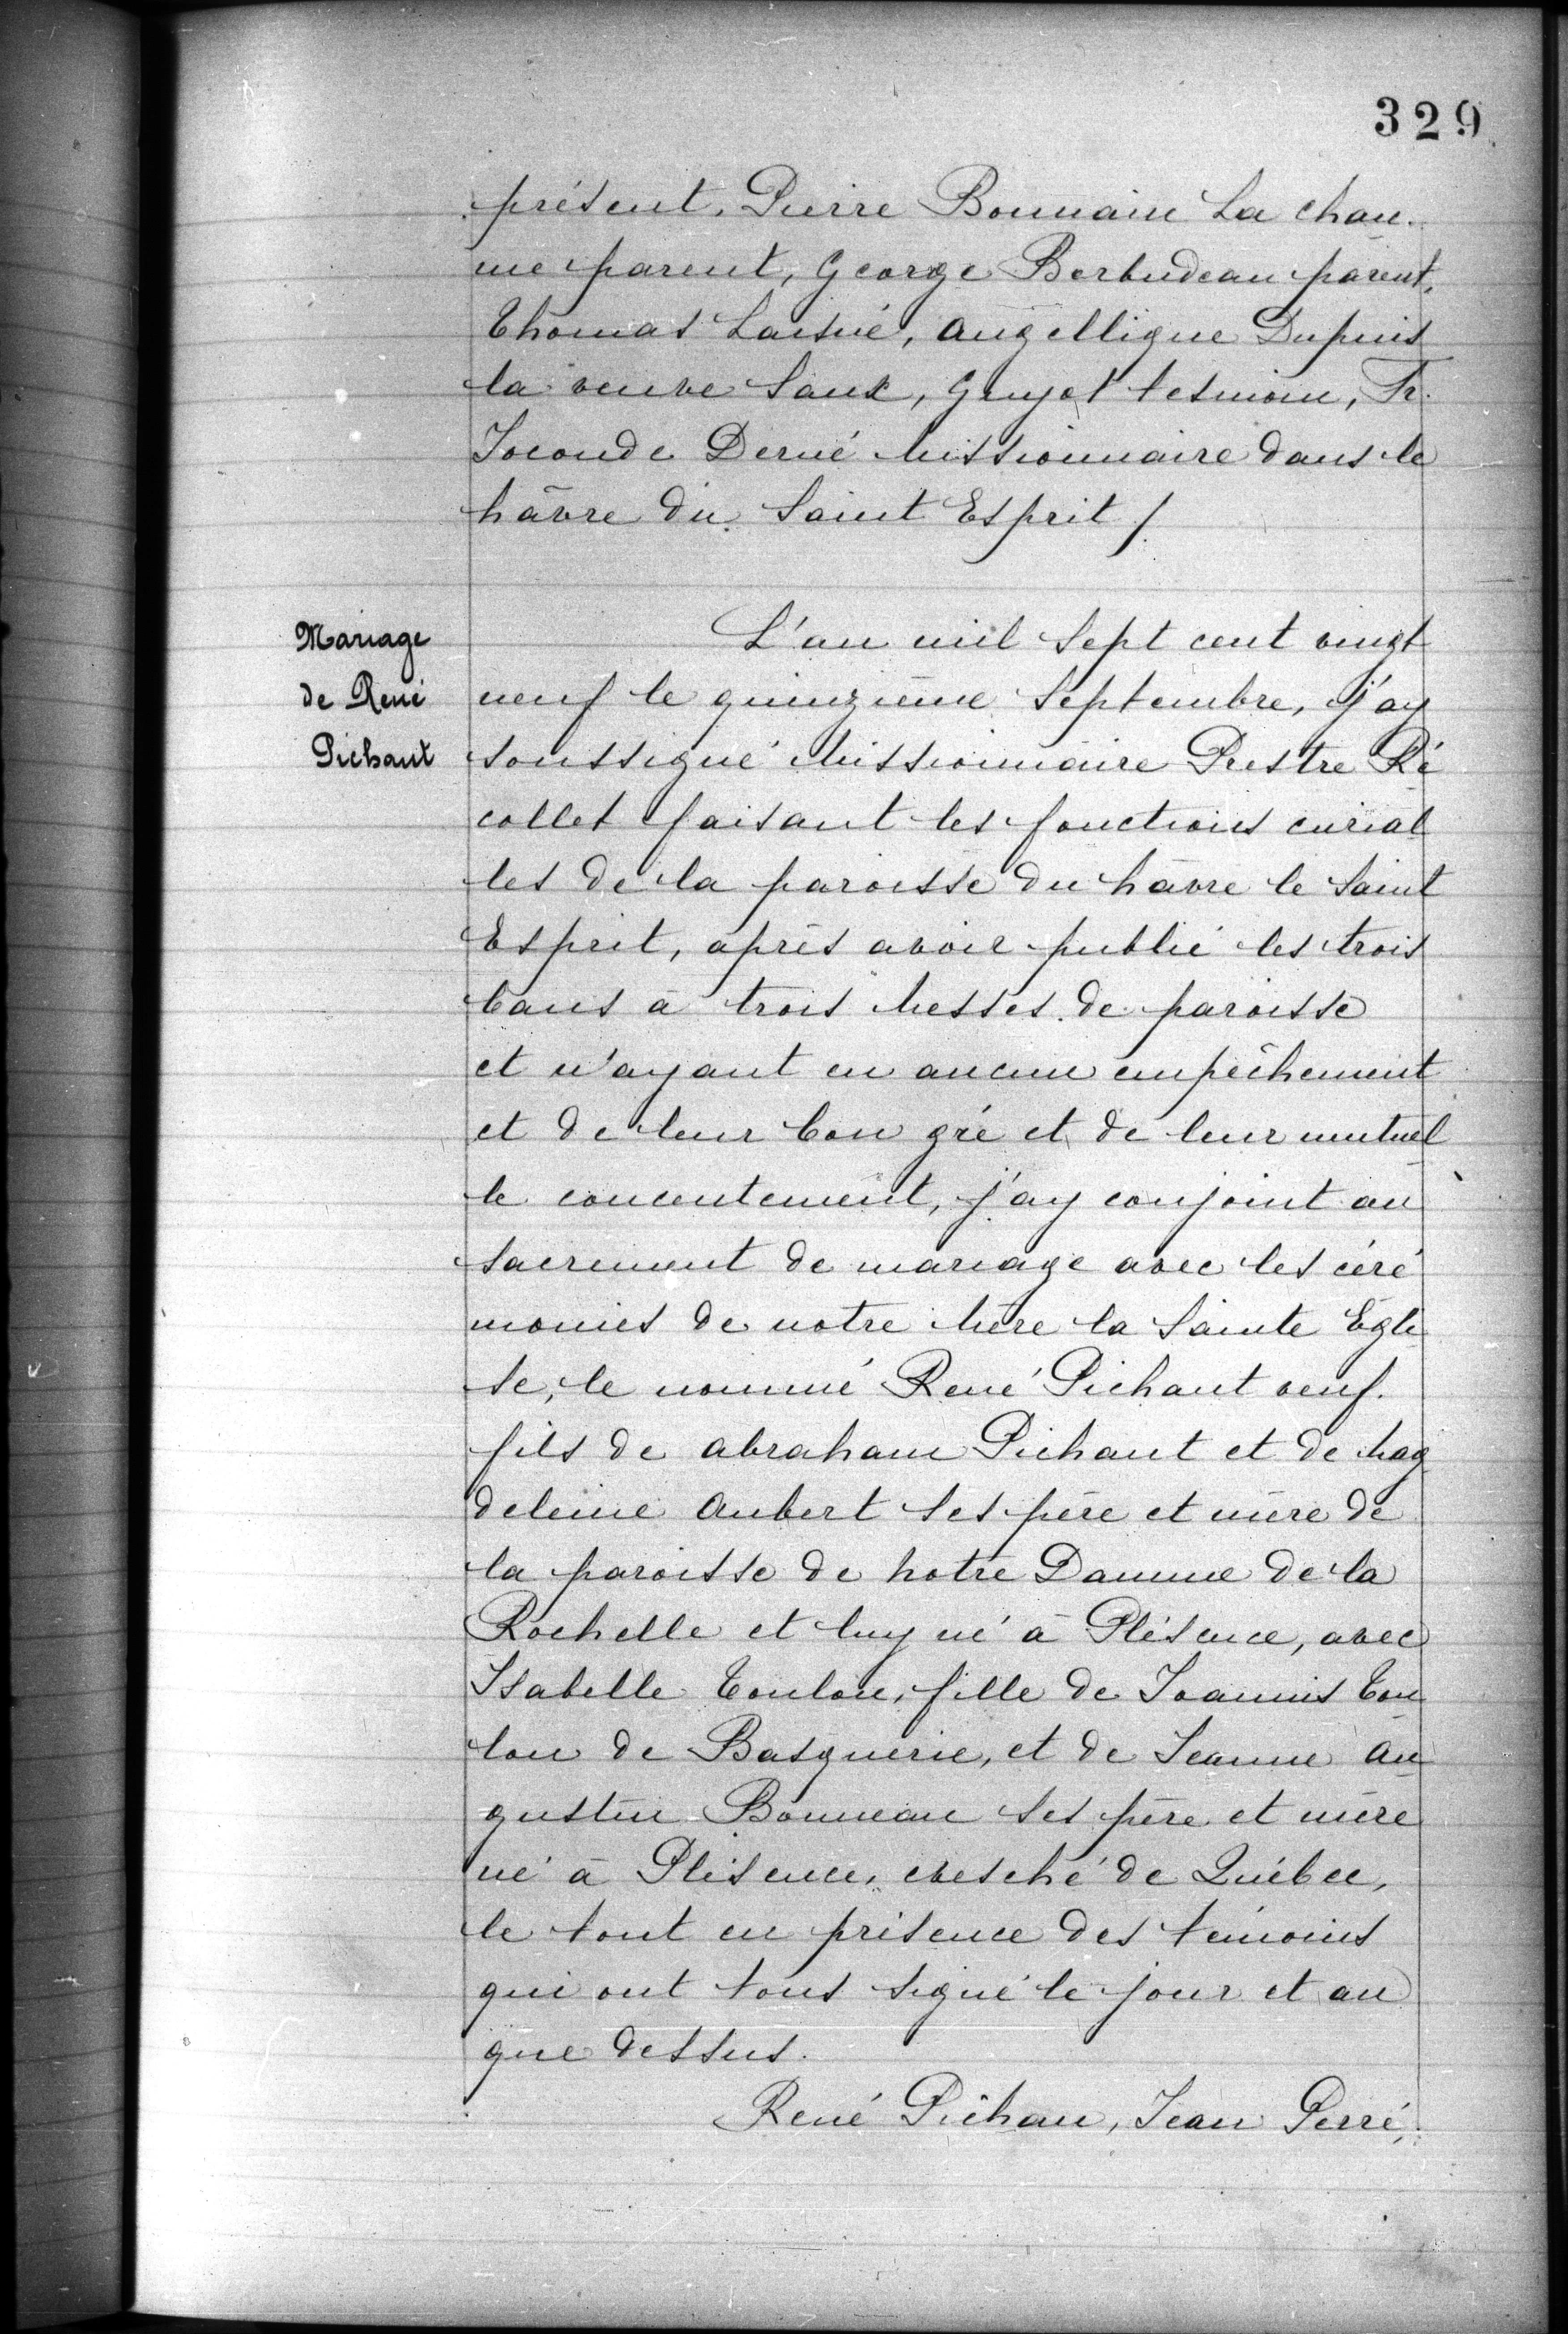 329
présent. Pierre Bonnain La chau.
me parent, George Berbudeau parent,
Thomas Laisné, Angellique Dupuis
la veuve Saux, Gruyot tesmoin, Fr.
Joconde Derné Missionnaire dans le
hâvre du Saint Esprit /.
Mariage
de René
Pichaut
L'an mil sept cent vingt
neuf le quinzième Septembre, j'ay
soussigné Missionnaire Prestre Ré
collet faisant les fonctions curial
les de la paroisse du hâvre le Saint
Esprit, après avoir publié les trois
bans à trois Messes de paroisse
et n'ayant eu aucun empêchement
et de leur bon gré et de leur mutuel
le concentement, j'ay conjoint au
sacrement de mariage avec les céré
monies de notre Mère la Sainte Égli
se, le nommé René Pichaut veuf.
fils de Abraham Pichaut et de Mag
deleine Aubert ses père et mère de
la paroisse de Notre Damme de la
Rochelle et luy né à Plésence, avec
Isabelle Toulon, fille de Joannis Tou
lon de Basquerie, et de Jeanne Au
gustin Bonneau ses père et mère
né à Plésence, evesché de Québec,
le tout en présence des témoins
qui ont tous signé le jour et an
que dessus.
René Pichau, Jean Perré,